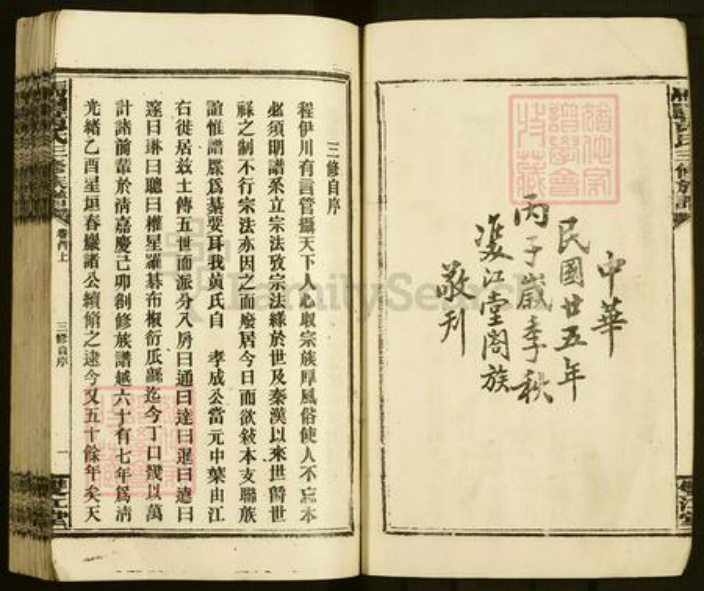 中華
民國廿五年
丙子歲季秋
雙江堂閤族
敬刊
三修自序
程伊川有言管攝天下人心収宗族厚風俗使人不忘本
必須明譜系立宗法攷宗法緣於世及秦漢以來世爵世
祿之制不行宗法亦因之而廢居今日而欲敍本支聯族
誼惟譜牒爲綦要耳我黃氏自 孝成公當元中葉由江
右徙居兹土傳五世而派分八房曰通曰達曰暹曰遠曰
邃曰琳曰聰曰權星羅棊布椒衍瓜緜迄今丁口幾以萬
計諸前輩於淸嘉慶己卯創修族譜越六十有七年爲淸
光緖乙酉星垣春巖諸公續脩之逮今又五十餘年矣天
氏三修族譜
卷首上
三修自序
一
雙江堂
氏三修族譜
雙江堂
FamilySearch